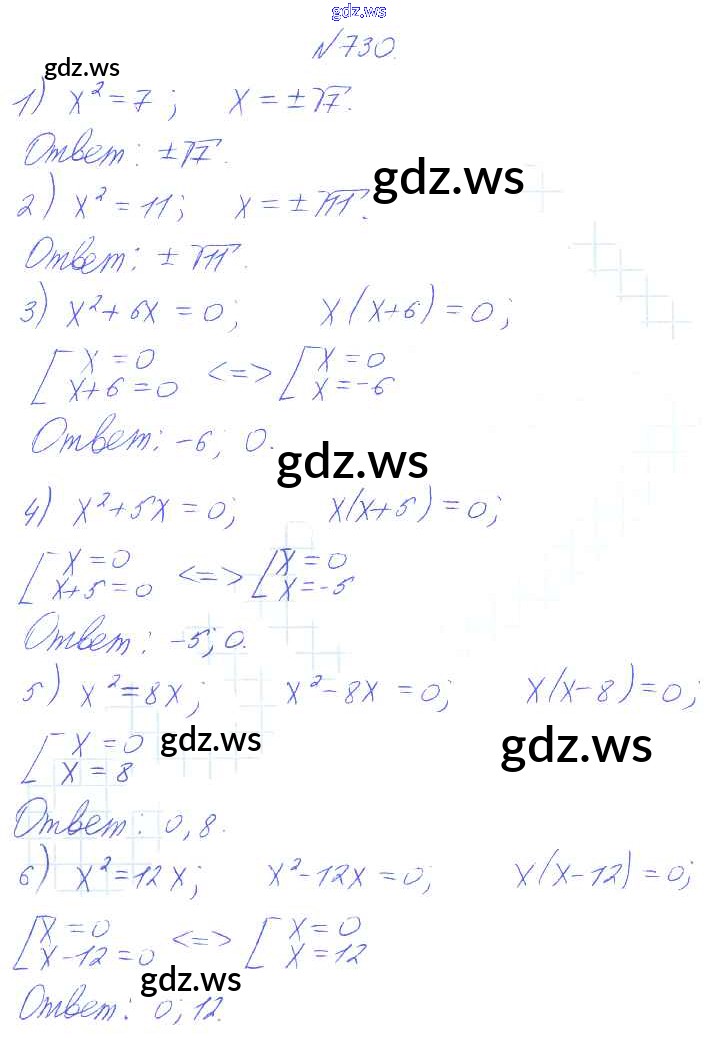 gdz.ws
N730.
gdz.ws
1) x² = 7; x = ±√7.
Ответ: ±√7.
gdz.ws
2) x² = 11; x = ±√11.
Ответ: ±√11.
3) x² + 6x = 0; x(x+6) = 0;
[ x = 0 <=> [ x = 0
x+6 = 0 x = -6
Ответ: -6; 0.
gdz.ws
4) x² + 5x = 0; x(x+5) = 0;
[ x = 0 <=> [ x = 0
x+5 = 0 x = -5
Ответ: -5; 0.
5) x² = 8x; x² - 8x = 0; x(x-8) = 0;
gdz.ws gdz.ws
[ x = 0
x = 8
Ответ: 0, 8.
6) x² = 12x; x² - 12x = 0; x(x-12) = 0;
[ x = 0 <=> [ x = 0
x-12 = 0 x = 12
gdz.ws
Ответ: 0; 12.